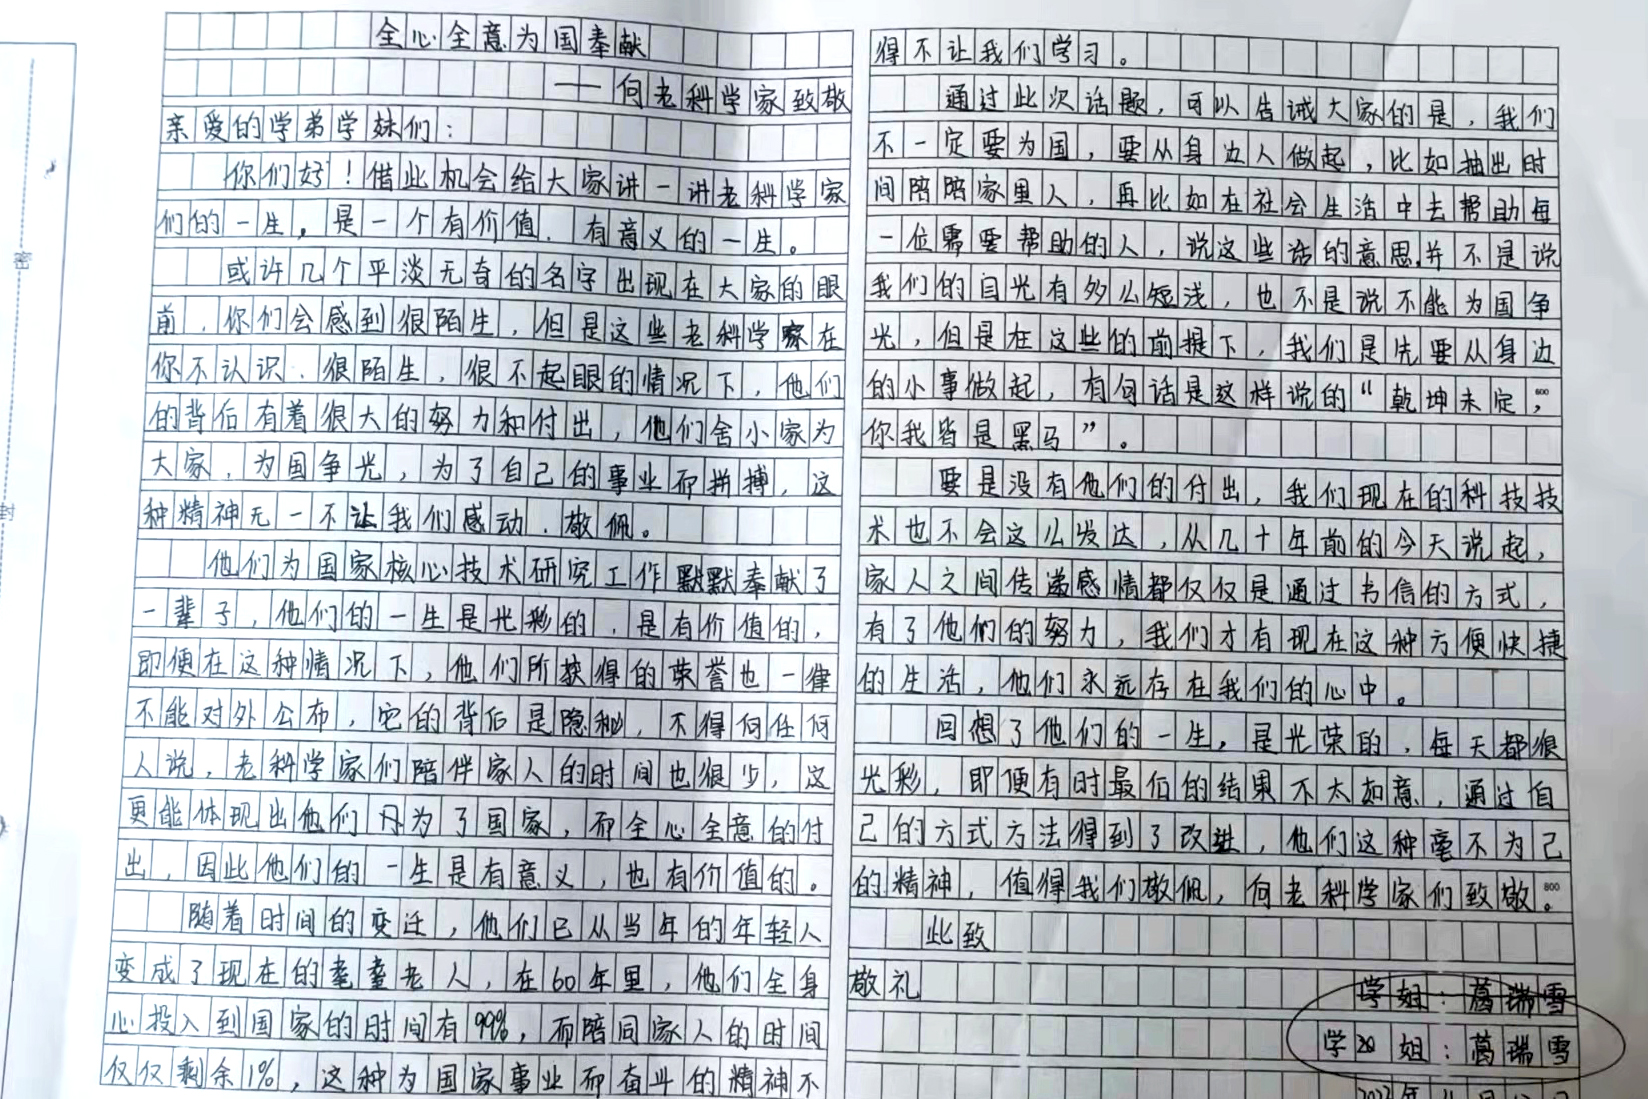 全心全意为国奉献
——向老科学家致敬
亲爱的学弟学妹们：
你们好！借此机会给大家讲一讲老科学家
们的一生，是一个有价值、有意义的一生。
或许几个平淡无奇的名字出现在大家的眼
前，你们会感到很陌生，但是这些老科学家在
你不认识、很陌生，很不起眼的情况下，他们
的背后有着很大的努力和付出，他们舍小家为
大家，为国争光，为了自己的事业而拼搏，这
种精神无一不让我们感动、敬佩。
他们为国家核心技术研究工作默默奉献了
一辈子，他们的一生是光彩的，是有价值的，
即便在这种情况下，他们所获得的荣誉也一律
不能对外公布，它的背后是隐秘，不得向任何
人说，老科学家们陪伴家人的时间也很少，这
更能体现出他们为了国家，而全心全意的付
出，因此他们的一生是有意义，也有价值的。
随着时间的变迁，他们已从当年的年轻人
变成了现在的耄耋老人，在60年里，他们全身
心投入到国家的时间有99%，而陪同家人的时间
仅仅剩余1%，这种为国家事业而奋斗的精神不
得不让我们学习。
通过此次话题，可以告诫大家的是，我们
不一定要为国，要从身边人做起，比如抽出时
间陪陪家里人，再比如在社会生活中去帮助每
一位需要帮助的人，说这些话的意思，并不是说
我们的目光有多么短浅，也不是说不能为国争
光，但是在这些的前提下，我们是先要从身边
的小事做起，有句话是这样说的“乾坤未定，
600
你我皆是黑马”。
要是没有他们的付出，我们现在的科技技
术也不会这么发达，从几十年前的今天说起，
家人之间传递感情都仅仅是通过书信的方式，
有了他们的努力，我们才有现在这种方便快捷
的生活，他们永远存在我们的心中。
回想了他们的一生，是光荣的，每天都很
光彩，即便有时最后的结果不太如意，通过自
己的方式方法得到了改进，他们这种毫不为己
的精神，值得我们敬佩，向老科学家们致敬。
800
此致
敬礼
学姐：葛瑞雪
学姐：葛瑞雪
密
封